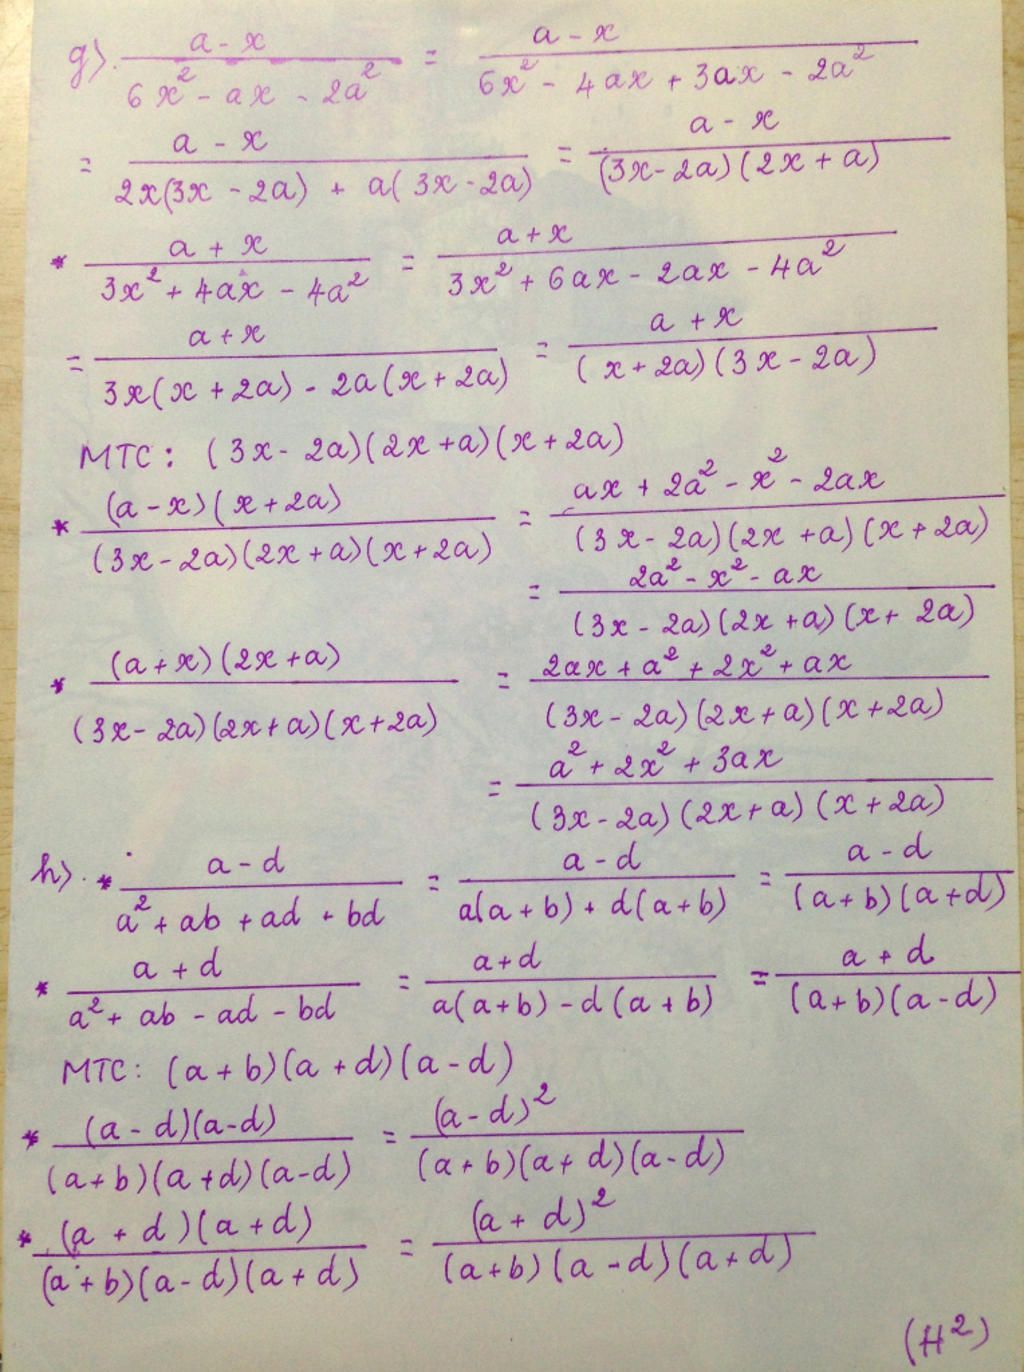 g) (a - x)/(6x² - ax - 2a²) = (a - x)/(6x² - 4ax + 3ax - 2a²)
= (a - x)/(2x(3x - 2a) + a(3x - 2a)) = (a - x)/((3x - 2a)(2x + a))
* (a + x)/(3x² + 4ax - 4a²) = (a + x)/(3x² + 6ax - 2ax - 4a²)
= (a + x)/(3x(x + 2a) - 2a(x + 2a)) = (a + x)/((x + 2a)(3x - 2a))
MTC: (3x - 2a)(2x + a)(x + 2a)
* ((a - x)(x + 2a))/((3x - 2a)(2x + a)(x + 2a)) = (ax + 2a² - x² - 2ax)/((3x - 2a)(2x + a)(x + 2a))
= (2a² - x² - ax)/((3x - 2a)(2x + a)(x + 2a))
* ((a + x)(2x + a))/((3x - 2a)(2x + a)(x + 2a)) = (2ax + a² + 2x² + ax)/((3x - 2a)(2x + a)(x + 2a))
= (a² + 2x² + 3ax)/((3x - 2a)(2x + a)(x + 2a))
h) * (a - d)/(a² + ab + ad + bd) = (a - d)/(a(a + b) + d(a + b)) = (a - d)/((a + b)(a + d))
* (a + d)/(a² + ab - ad - bd) = (a + d)/(a(a + b) - d(a + b)) = (a + d)/((a + b)(a - d))
MTC: (a + b)(a + d)(a - d)
* ((a - d)(a - d))/((a + b)(a + d)(a - d)) = (a - d)²/((a + b)(a + d)(a - d))
* ((a + d)(a + d))/((a + b)(a - d)(a + d)) = (a + d)²/((a + b)(a - d)(a + d))
(H²)